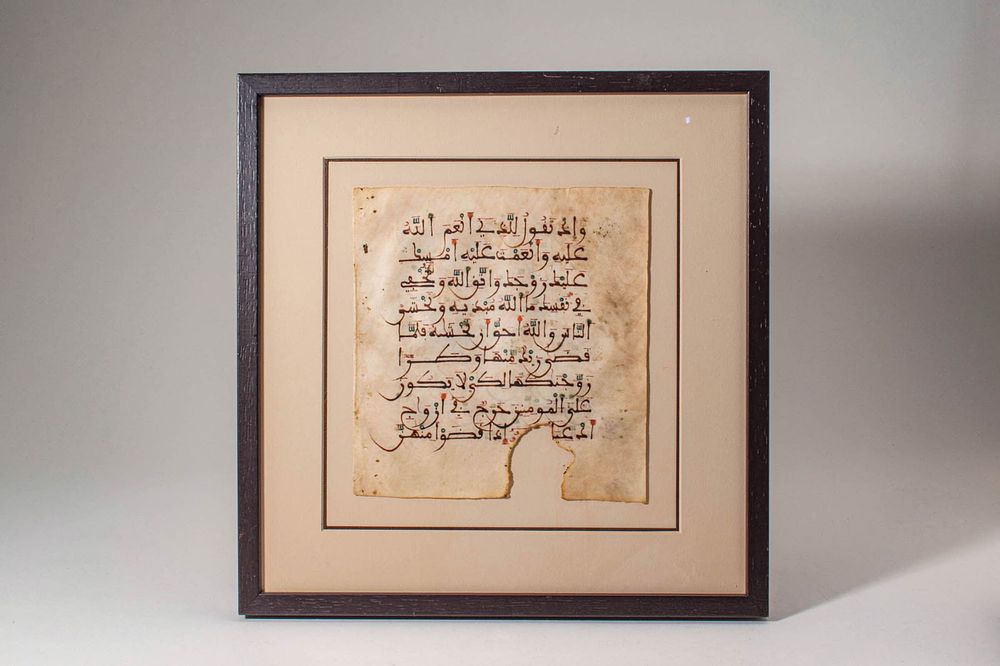 وإذ تقول للذي أنعم الله
عليه وأنعمت عليه أمسك
عليك زوجك واتق الله وتخفي
في نفسك ما الله مبديه وتخشى
الناس والله أحق أن تخشه فلما
قضى زيد منها وطرا
زوجنكها لكي لا يكون
على المومنين حرج في أزواج
إذا قضوا منهن